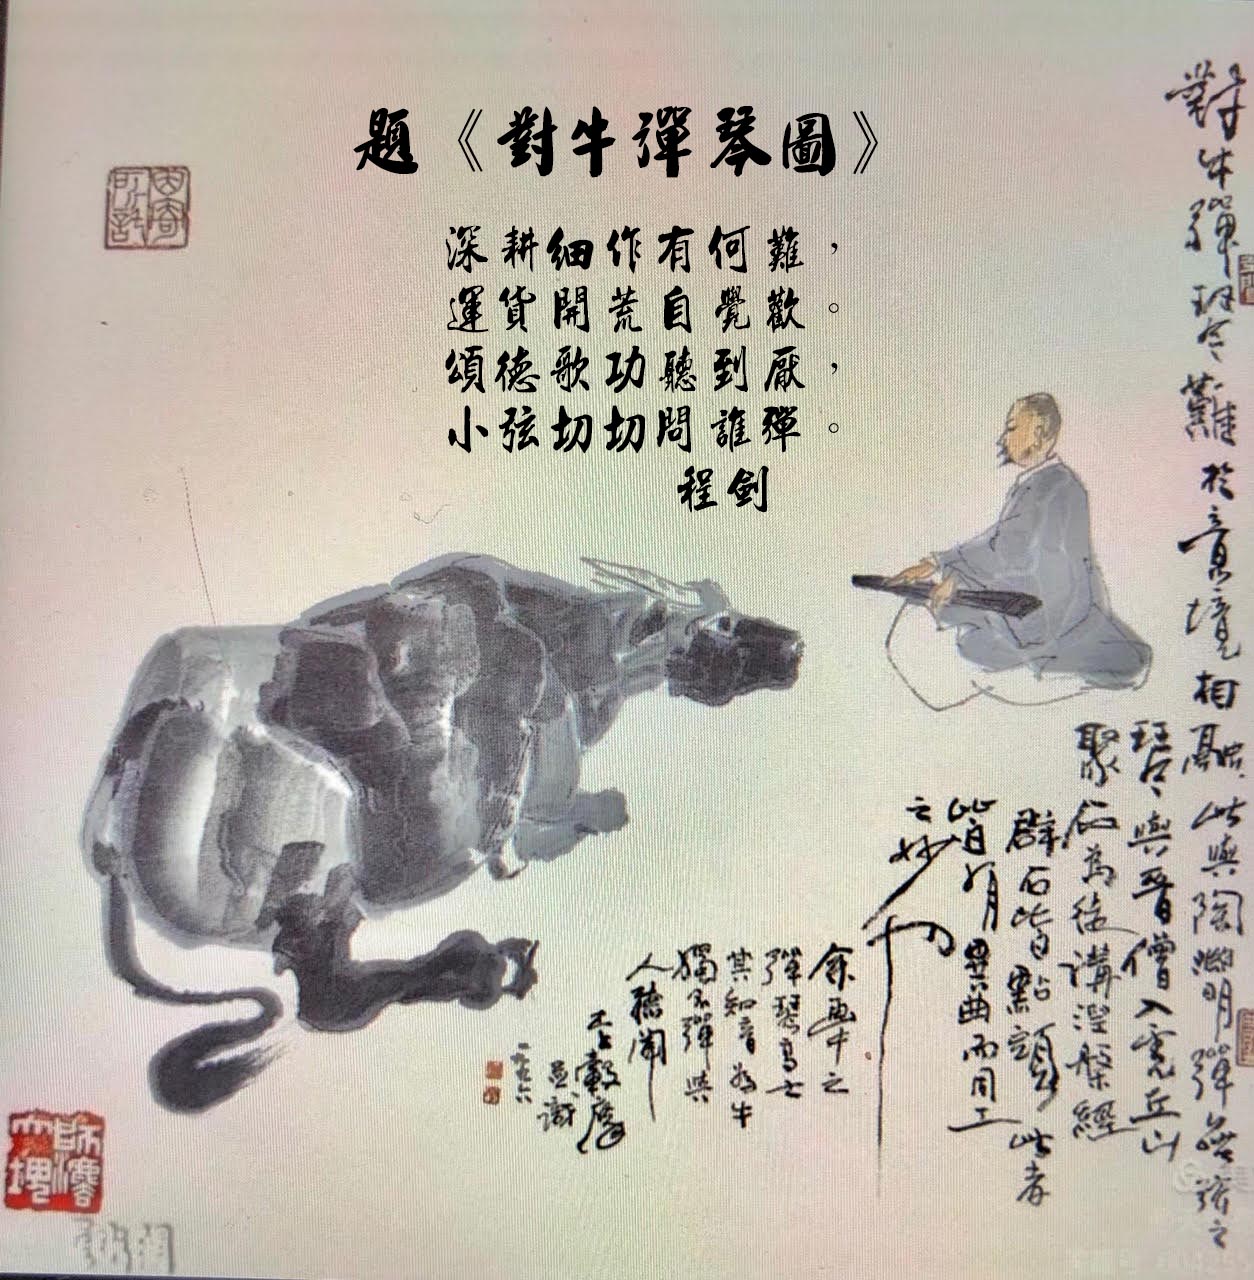 題《對牛彈琴圖》
深耕細作有何難，
運貨開荒自覺歡。
頌德歌功聽到厭，
小弦切切問誰彈。
程劍
對牛彈琴難於意境相融此與陶淵明彈無弦之
琴與晉僧入虎丘山
聚石為徒講涅槃經
群石皆點頭此者
皆有異曲而同工
之妙也
余畫中之
彈琴高士
其知音為牛
獨不彈與
人聽聞
並識
一九九六